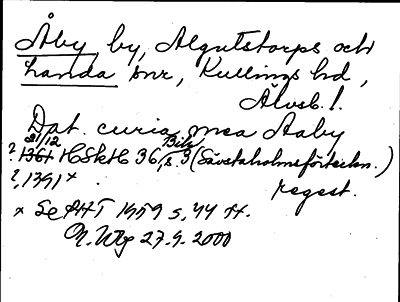 Åby by, Algutstorps och
Landa snr, Kullings hd,
Älvsb. l.
Dat. curia mea Aaby
31/12 Bih.
? 1361 HSkH 36, s. 9 (Sävstaholmsförteckn.)
?, 1391 x regest.
x Se PHT 1959 s. 44 ff.
27.9.2000